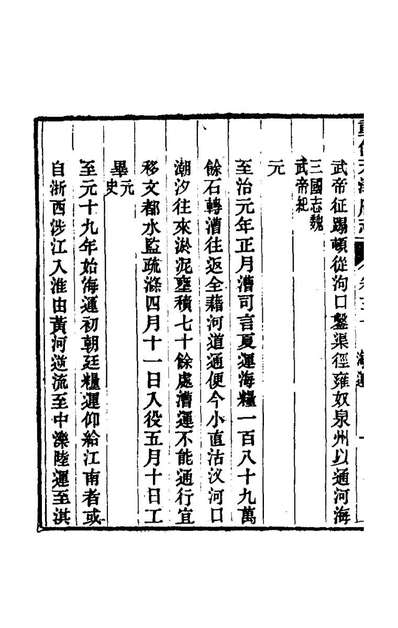 武帝征蹋頓從泃口鑿渠徑雍奴泉州以通河海
三國志魏
武帝紀
元
至治元年正月漕司言夏運海糧一百八十九萬
餘石轉漕往返全藉河道通便今小直沽汊河口
潮汐往來淤泥壅積七十餘處漕運不能通行宜
移文都水監疏滌四月十一日入役五月十日工
畢元
史
至元十九年始海運初朝廷糧運仰給江南者或
自浙西涉江入淮由黃河逆流至中灤陸運至淇